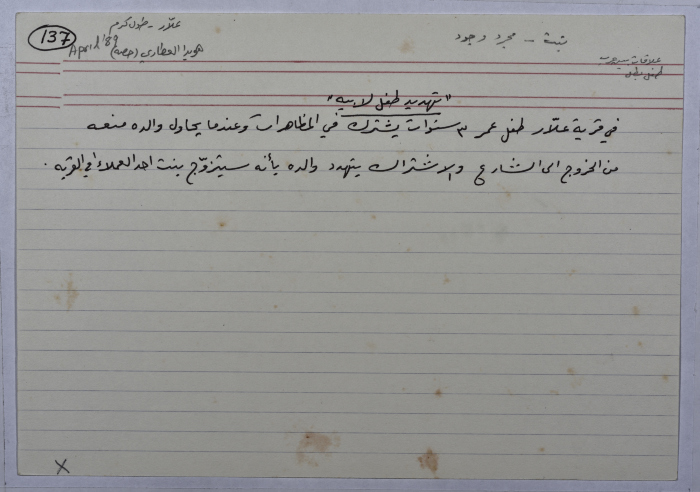 137
علّار - طولكرم
April '89
هويدا العطاري (جمعه)
نبتة - مجرد وجود
علاقات
طفل
"تهديد طفل لابيه"
في قرية علّار طفل عمر ٣ سنوات يشترك في المظاهرات وعندما يحاول والده منعه
من الخروج الى الشارع والاشتراك يتهدد والده بأنه سيتزوّج بنت احد العملاء في القرية .
X